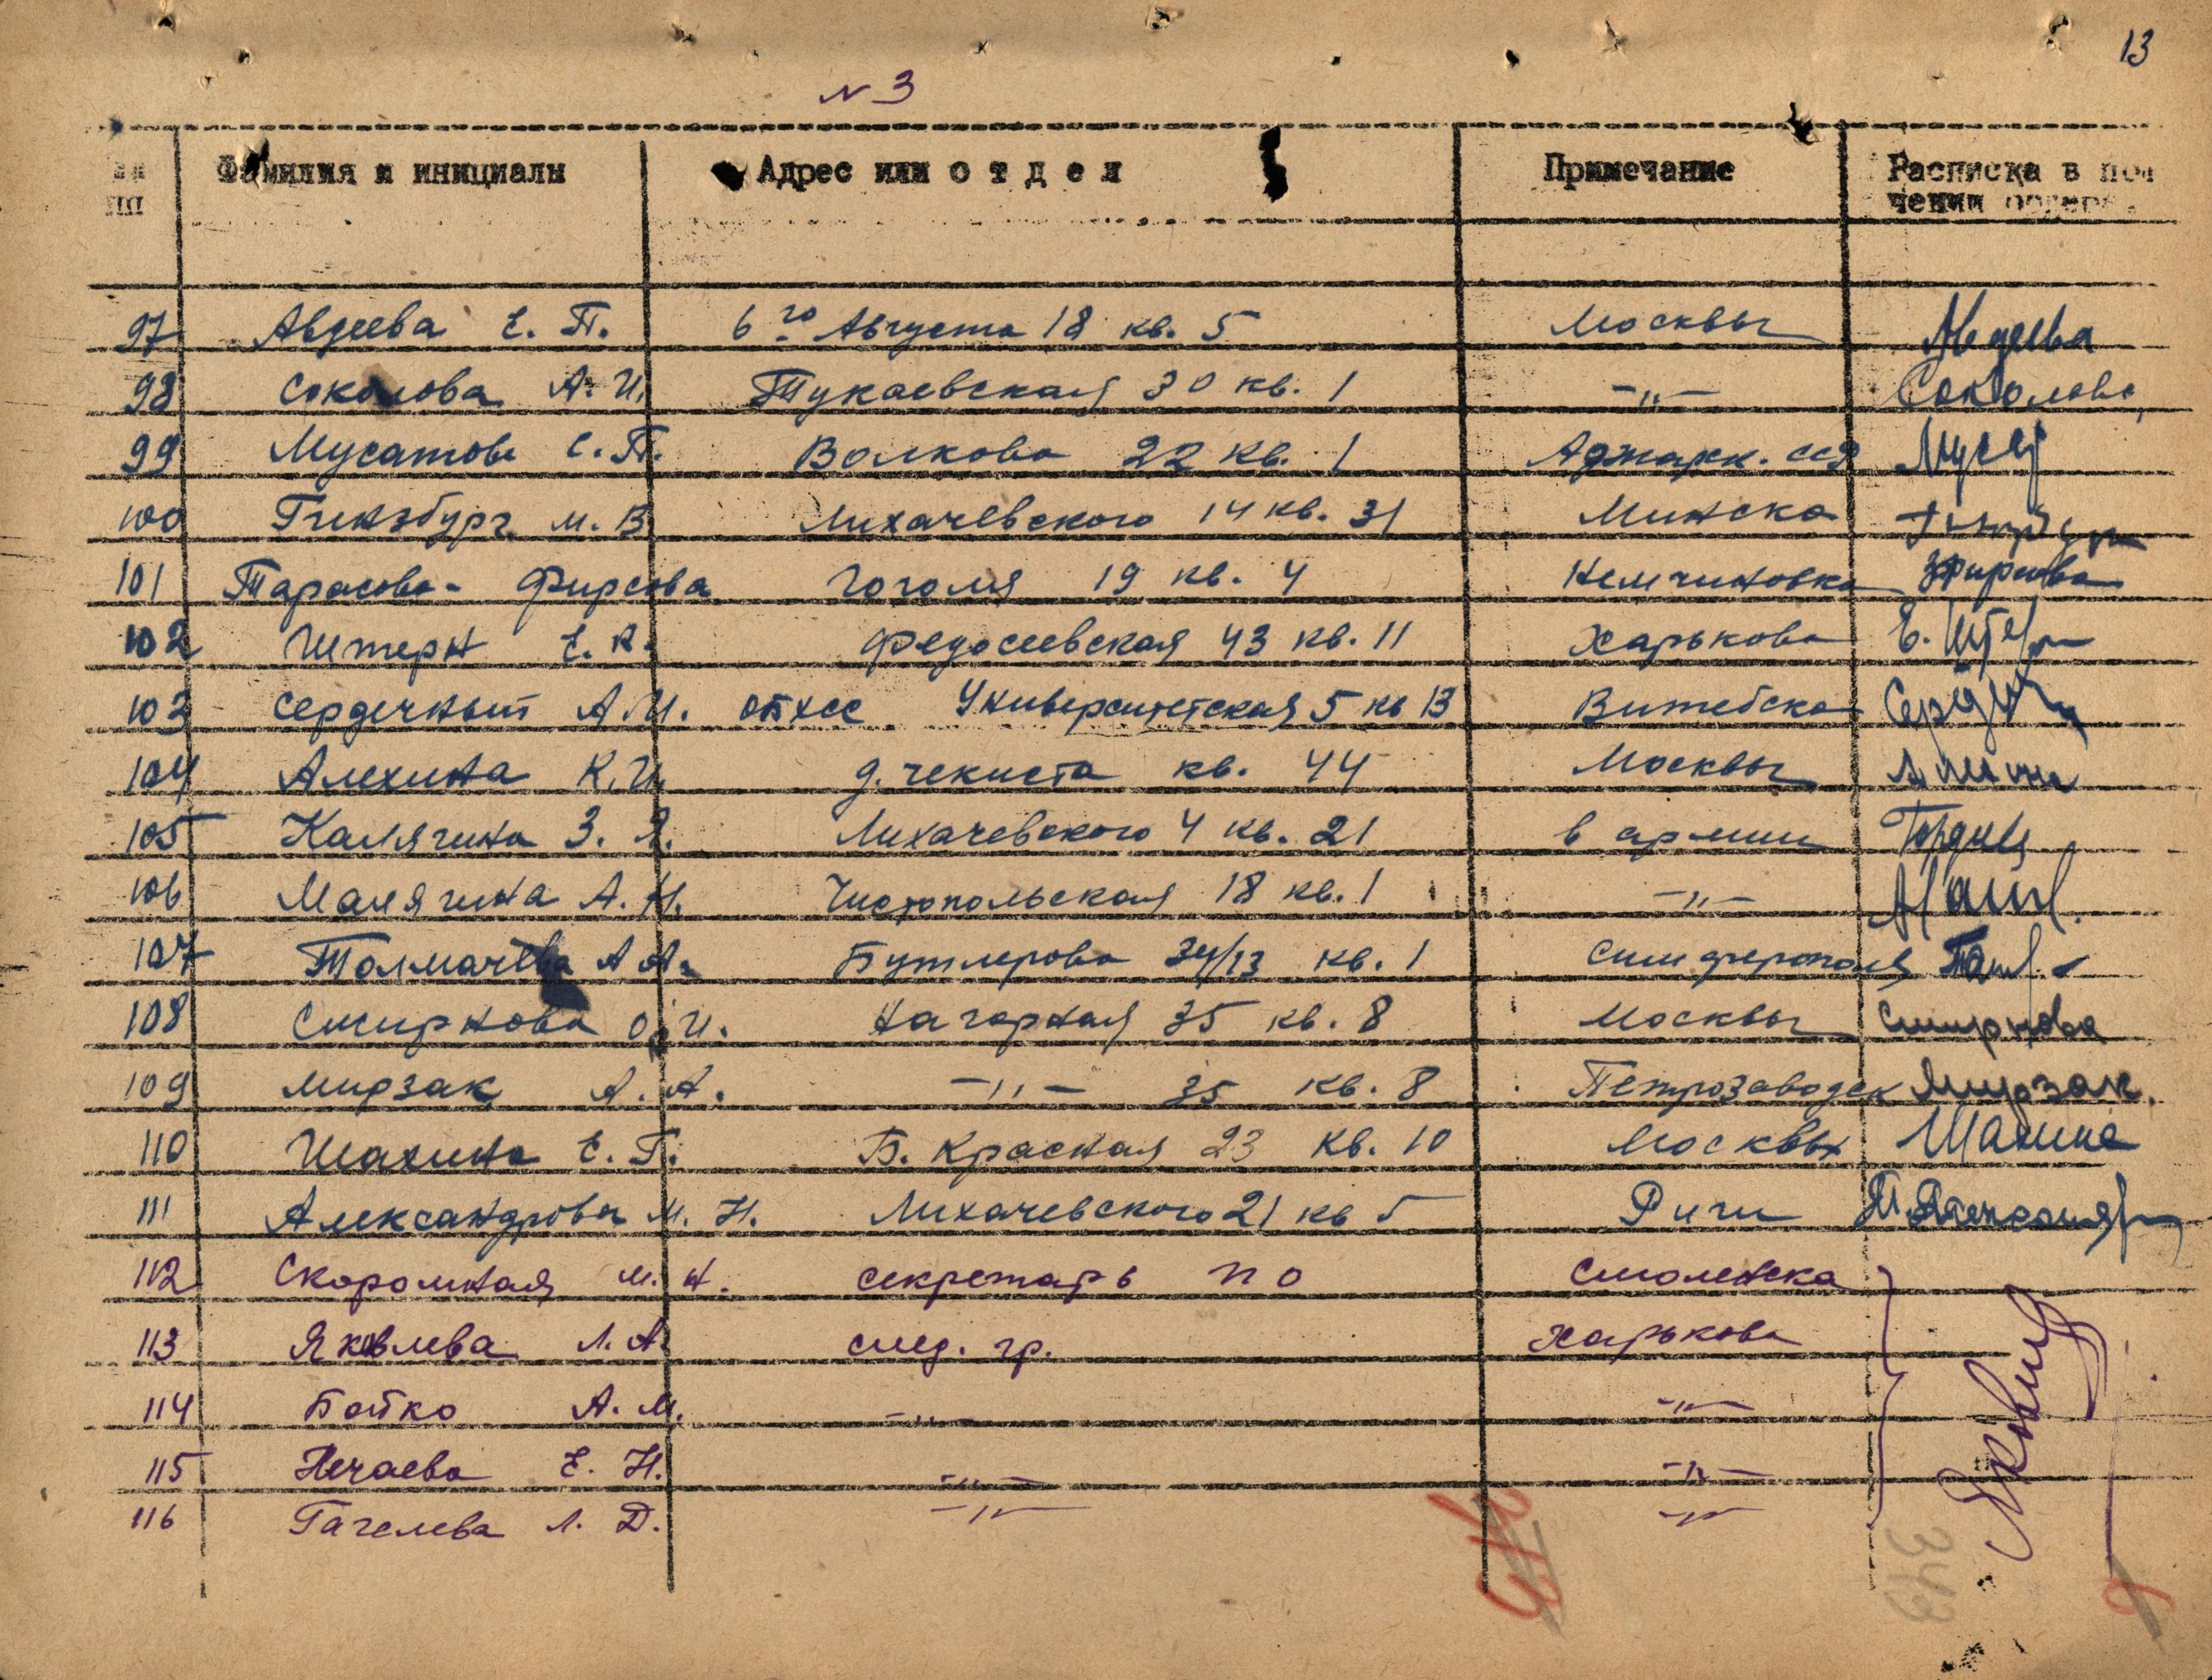 13
N 3
Фамилия и инициалы Адрес или отдел Примечание Расписка в пол
пп чении ордера.
97 Авдеева Е. П. 6го Августа 18 кв. 5 Москвы Авдеева
98 Соколова А. И. Тукаевская 30 кв. 1 -"- Соколова
99 Мусатова Е. П. Волкова 22 кв. 1 Аджарк. ССР
100 Гинзбург М. В. Лихачевского 14 кв. 31 Минска
101 Тарасова-Фирсова Гоголя 19 кв. 4 Немчиновка Фирсова
102 Штерн Е. К. Федосеевская 43 кв. 11 Харькова Е. Штерн
103 Сердечный А. И. ОБХСС Университетская 5 кв 13 Витебска
104 Алехина К. И. д. чекиста кв. 44 Москвы
105 Калягина З. Я. Лихачевского 4 кв. 21 в армии
106 Малягина А. Н. Чистопольская 18 кв. 1 -"-
107 Толмачева А А. Бутлерова 34/13 кв. 1 Симферополь
108 Смирнова О. И. Нагорная 35 кв. 8 Москвы Смирнова
109 Мирзак А. А. -"- 35 кв. 8 Петрозаводск Мирзак.
110 Шахина Е. П. Б. Красная 23 кв. 10 Москвы Шахина
111 Александрова М. Н. Лихачевского 21 кв 5 Риги
112 Скоромная М. Н. секретарь ПО Смоленска
113 Яковлева Л. А. след. гр. Харькова
114 Бойко А. М. -"- -"-
115 Нечаева Е. Н. -"- -"-
116 Гачелева Л. Д. -"- -"-